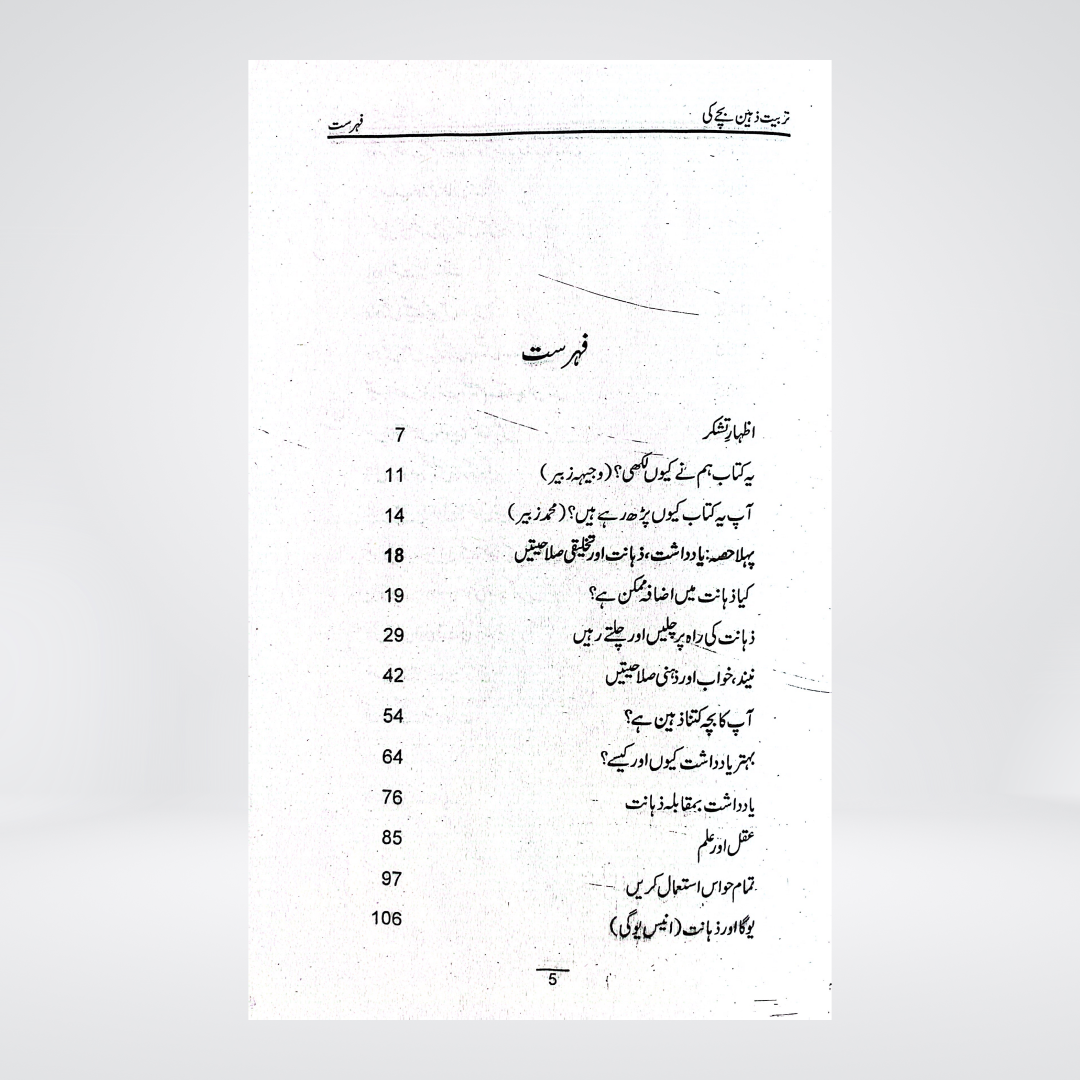 تربیت ذہین بچے کی
فہرست
فہرست
اظہارِ تشکر 7
یہ کتاب ہم نے کیوں لکھی؟ (وجیہہ زبیر) 11
آپ یہ کتاب کیوں پڑھ رہے ہیں؟ (محمد زبیر) 14
پہلا حصہ: یادداشت، ذہانت اور تخلیقی صلاحیتیں 18
کیا ذہانت میں اضافہ ممکن ہے؟ 19
ذہانت کی راہ پر چلیں اور چلتے رہیں 29
نیند، خواب اور ذہنی صلاحیتیں 42
آپ کا بچہ کتنا ذہین ہے؟ 54
بہتر یادداشت کیوں اور کیسے؟ 64
یادداشت بمقابلہ ذہانت 76
عقل اور علم 85
تمام حواس استعمال کریں 97
یوگا اور ذہانت (انیس یوگی) 106
5